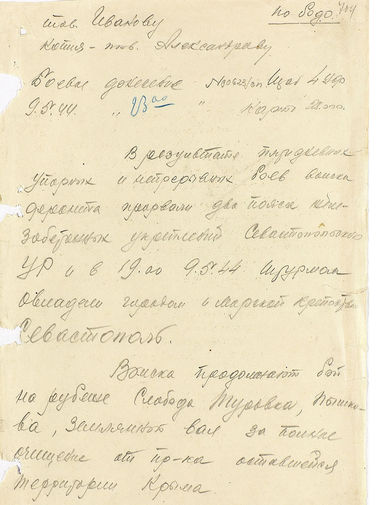 по бодо. 704
тов. Иванову
Копия - тов. Александрову
Боевое донесение № Штаб 4 Укр
9.5.44. " 23 00 " Карта
В результате пятидневных
упорных и непрерывных боев войска
фронта прорвали два пояса желе-
зобетонных укреплений Севастопольского
УР и в 19.00 9.5.44 штурмом
овладели городом и морской крепостью
Севастополь.
Войска продолжают бой
на рубеже Слобода Туровка, Пышко-
ва, Земляной вал за полное
очищение от пр-ка оставшейся
территории Крыма.